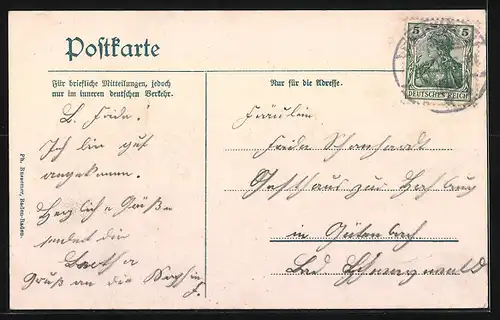 Postkarte
5 5
DEUTSCHES REICH
Für briefliche Mitteilungen, jedoch
nur im inneren deutschen Verkehr.
Nur für die Adresse.
L. Frida!
Ich bin gut
angekommen.
Herzliche Grüße
sendet dir
Bertha
Gruß an die
Fräulein
Frida
Gasthaus zur
in Gütenbach
Bad. Schwarzwald
Ph. Bussemer, Baden-Baden.